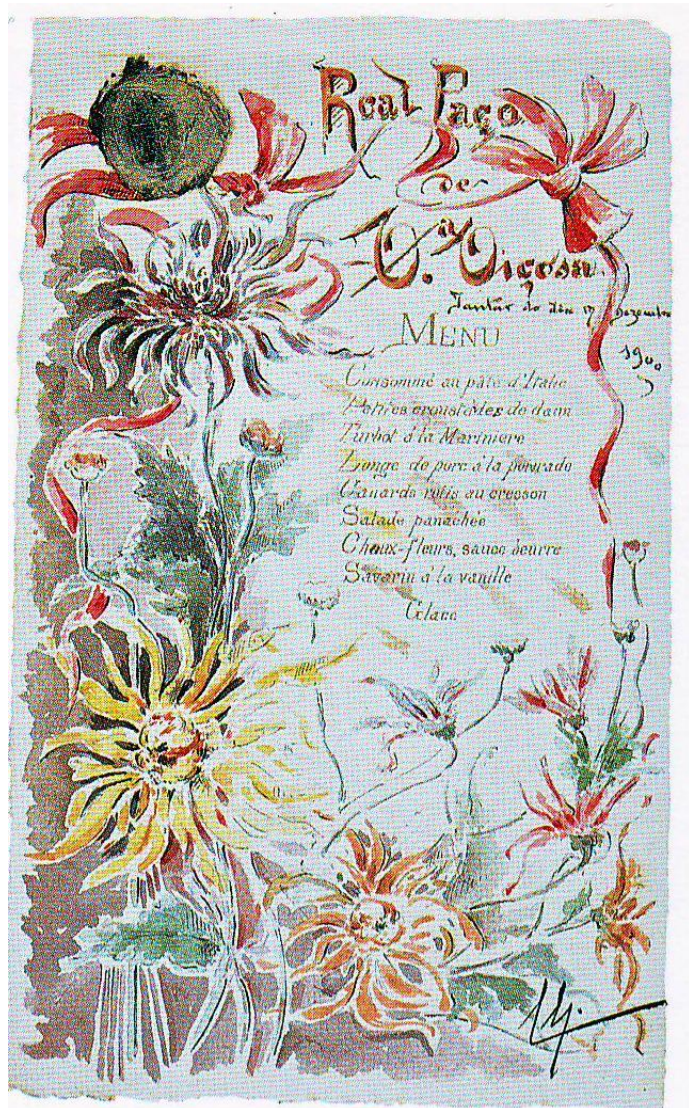 Real Paço
de
V.ª Viçosa.
Jantar do dia 17 Dezembro
1900
MENU
Consommé au pâte d'Italie
Petites croustades de daim
Turbot à la Marinière
Longe de porc à la poivrade
Canards rotis au cresson
Salade panachée
Choux-fleurs, sauce beurre
Savarin à la vanille
Glace